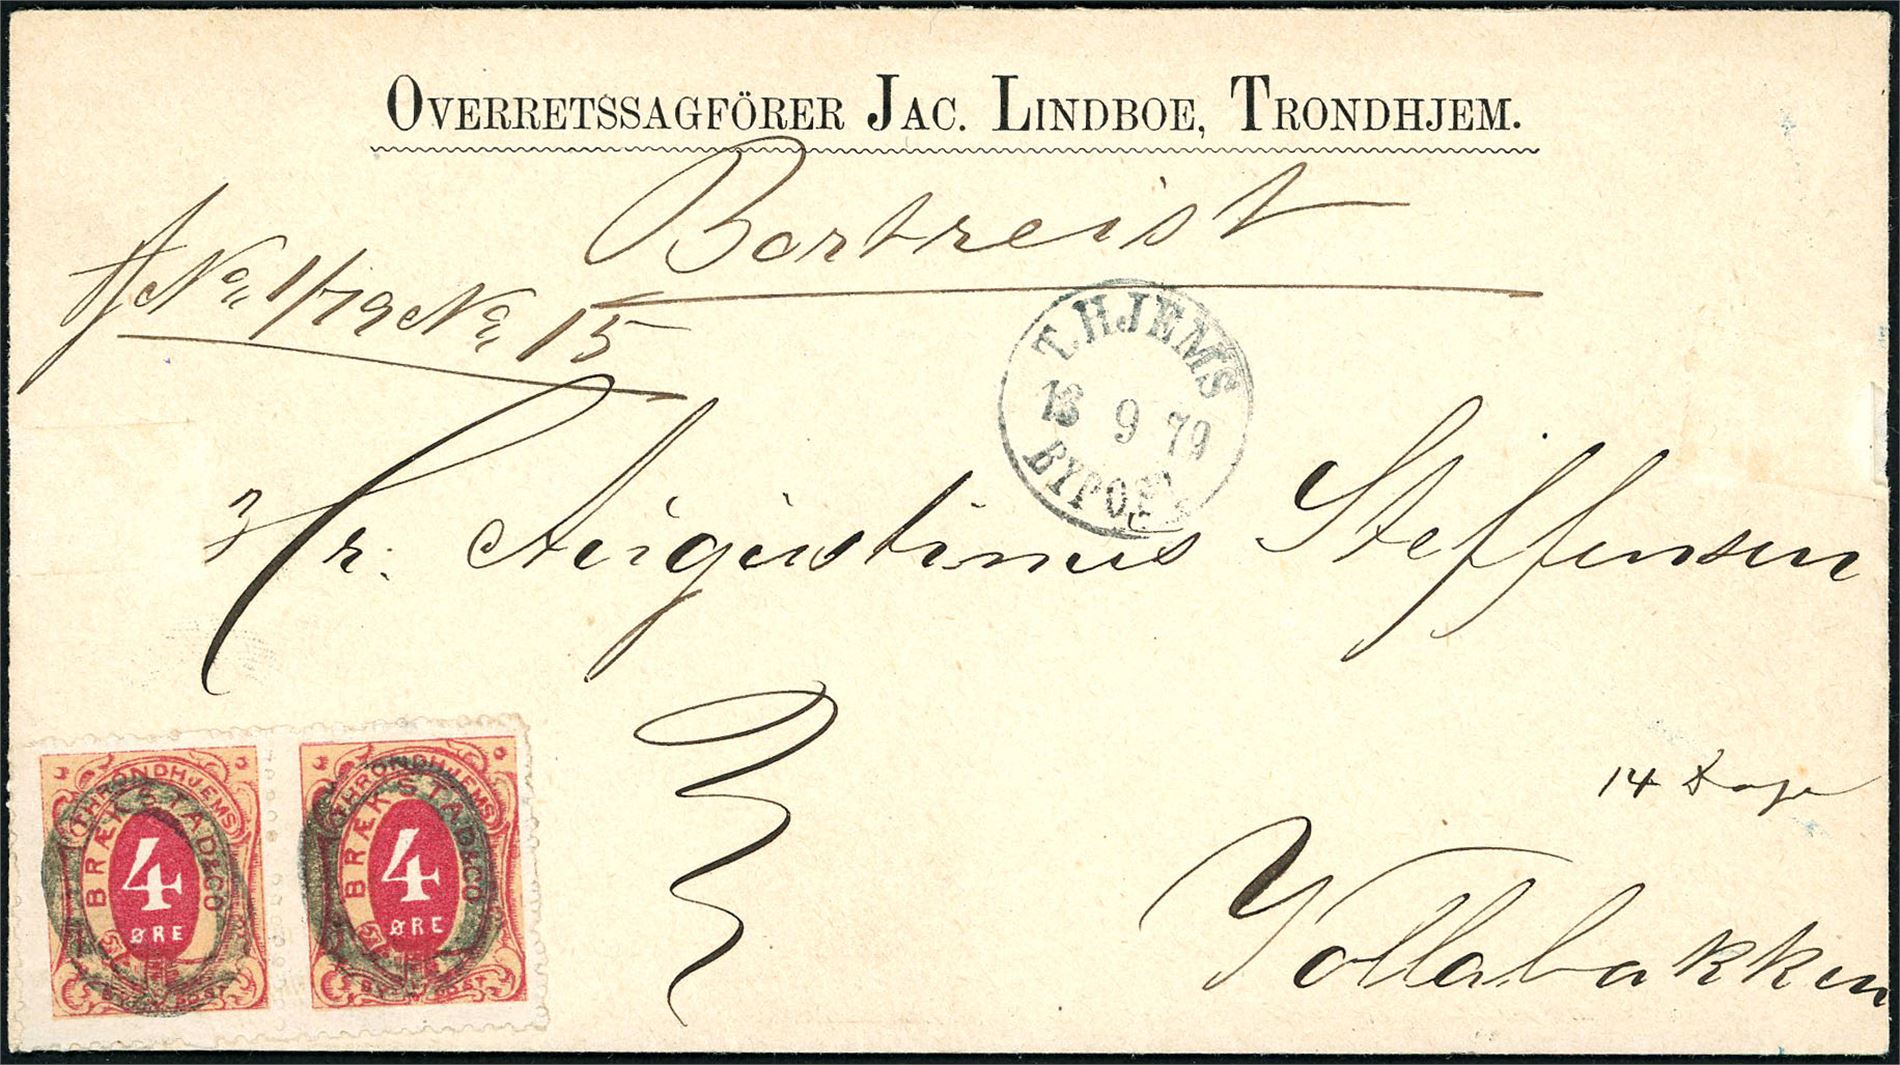 OVERRETSSAGFÖRER JAC. LINDBOE, TRONDHJEM.
Bortreist
No 1/79 No 15
T.HJEMS
13 9 79
BYPOST
Hr. Augustinus Steffensen
14 Dage
Vollabakken
THRONDHJEMS
BRÆKSTAD & CO
4
ØRE
BYPOST
THRONDHJEMS
BRÆKSTAD & CO
4
ØRE
BYPOST